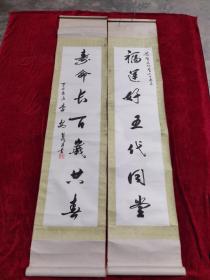 福運好五代同堂
壽命長百歲共春